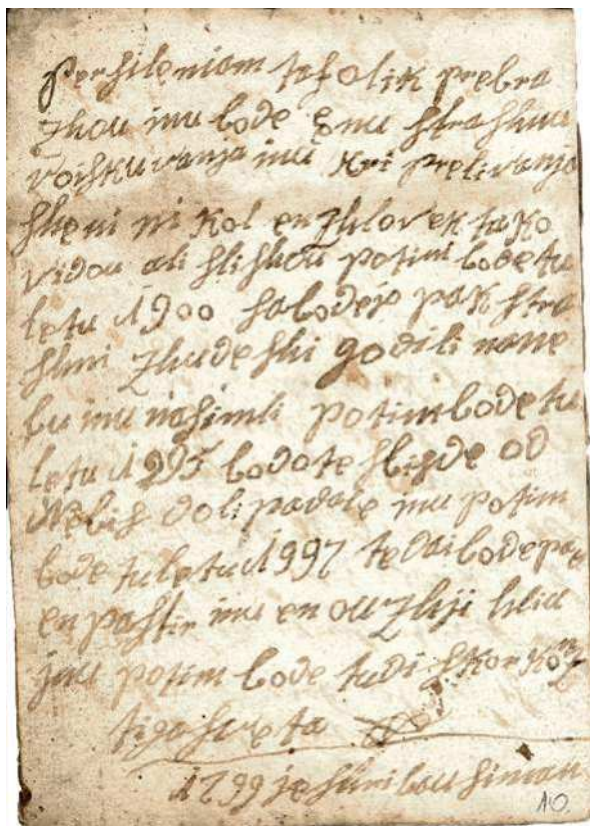 perſileniam taſolik prebra
zhou inu bode enu ſtraſhnu
voiſkuvanja inu kri prelivanja
ſkeni ni kol en zhlovek tako
vidou ali ſliſhou potim bode tu
letu 1900 ſabodejo pak ſtra
ſhni zhudeſhi godili nane
bu inu naſimli potim bode tu
letu 1995 bodote ſbiſde od
Nebiſ doli padale inu potim
bode tu letu 1997 tedai bode pak
en paſtir inu en ouzhji hliu
inu potim bode tudi ſkor konz
tiga ſveta
1799 je ſhribau Simon
10.